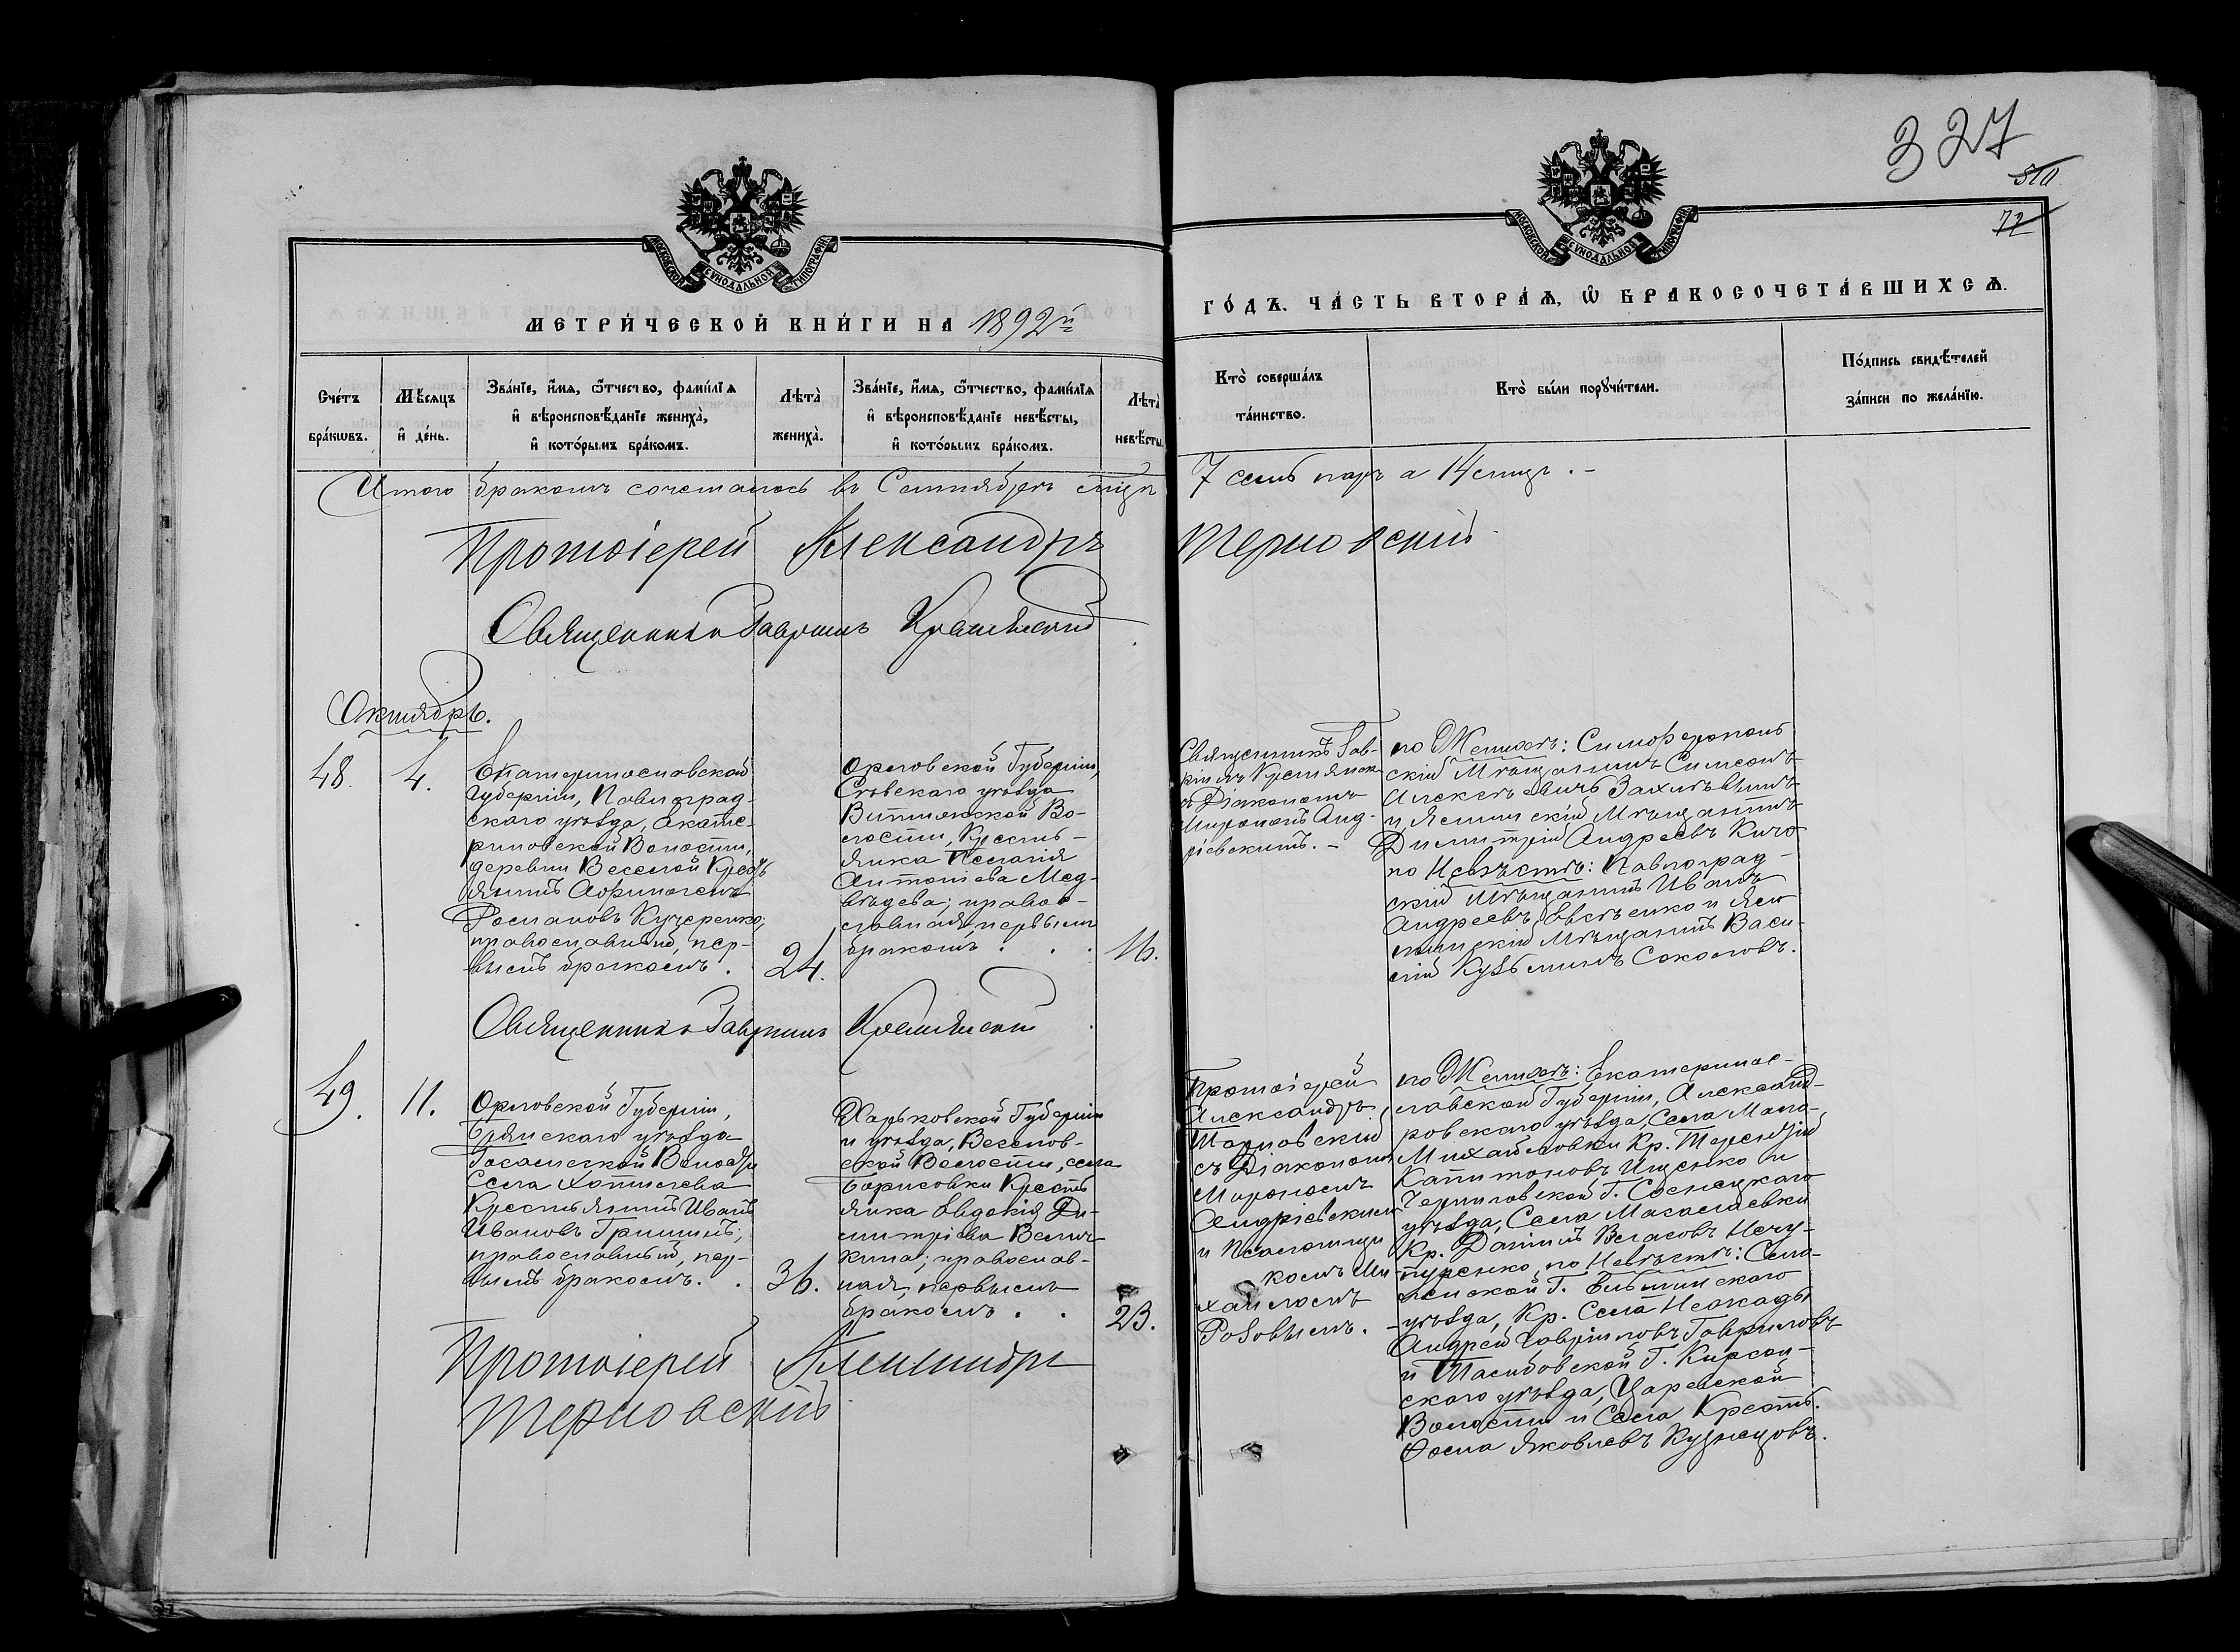 327
510.
72
МОСКОВСКОЙ СѴНОДАЛЬНОЙ ТИПОГРАФІИ
МОСКОВСКОЙ СѴНОДАЛЬНОЙ ТИПОГРАФІИ
МЕТРИ́ЧЕСКОЙ КНИ́ГИ НА 1892й
ГО́ДЪ. ЧА́СТЬ ВТОРА́Ѧ, Ѽ БРАКОСОЧЕТА́ВШИХСѦ.
Сче́тъ
бра́кѡвъ.
Мѣ́сѧцъ
и҆ де́нь.
Зва́нїе, и҆́мѧ, ѻ҆́тчество, фами́лїѧ
и҆ вѣроисповѣ́данїе жениха̀,
и҆ кото́рымъ бра́комъ.
Лѣ́та̀
жениха̀.
Зва́нїе, и҆́мѧ, ѻ҆́тчество, фами́лїѧ
и҆ вѣроисповѣ́данїе невѣ́сты,
и҆ кото́рымъ бра́комъ.
Лѣ́та̀
невѣ́сты.
Кто̀ соверша́лъ
та́инство.
Кто̀ бы́ли порꙋчи́тели.
По́дпись свидѣ́телей
за́писи по жела́нїю.
Итого бракомъ сочеталось въ Сентябрѣ мцѣ 7 семь паръ а 14 лицъ.-
Протоіерей Александръ Терновскій
Священникъ Гавріилъ Крещянскій
Октябрь.
48.
4.
Екатеринославской
Губерніи, Павлоград-
скаго уѣзда, Екате-
риновской Волости,
деревни Веселой Кресть
янинъ Афиногенъ
Романовъ Кучеренко;
православный, пер-
вымъ бракомъ.
24.
Орловской Губерніи,
Сѣвскаго уѣзда
Во-
лости, Кресть-
янка Пелагія
Антоніева Мед-
вѣдева; право-
славная, первымъ
бракомъ . .
16.
Священникъ Гав-
ріилъ Крещянск.
съ Діакономъ
Мирономъ Анд-
ріевскимъ. -
по Женихѣ: Симферополь
скій Мѣщанинъ Симеонъ
Алексѣевичъ
и, Мѣщанинъ
Димитрій Андреевъ
по Невѣстѣ: Павлоград-
скій Мѣщанинъ Иванъ
Андреевъ и
Мѣщанинъ Васи-
лій Кузьминъ Соколовъ.
Священникъ Гавріилъ Крещянскій
49.
11.
Орловской Губерніи,
Брянскаго уѣзда
Волости
Села Хотылева
Крестьянинъ Иванъ
Ивановъ Гришинъ;
православный, пер-
вымъ бракомъ. .
36.
Харьковской Губерніи
и уѣзда,
ской Волости, села
Борисовки Кресть
янка Евдокія Ди-
митріева
кина; православ-
ная, первымъ
бракомъ . .
23.
Протоіерей
Александръ
Терновскій
съ Діакономъ
Мирономъ
Андріевскимъ
и Псаломщи
комъ Ми-
хаиломъ
Розовымъ.
по Женихѣ: Екатеринос-
лавской Губерніи, Александ-
ровскаго уѣзда, Села Мало-
Михайловки Кр. Терентій
Капитоновъ Ищенко и
Черниговской Г. Сосницкаго
уѣзда, Села
Кр. Даніилъ Власовъ Нечу-
пуренко, по Невѣстѣ: Смо-
ленской Г. Ельнинскаго
уѣзда, Кр. Села
Андрей Гавріиловъ Гавриловъ
и Тамбовской Г. Кирсан-
скаго уѣзда, Царевской
Волости и Села Крестьян.
Ѳома Яковлевъ Кузнецовъ.
Протоіерей Александръ
Терновскій